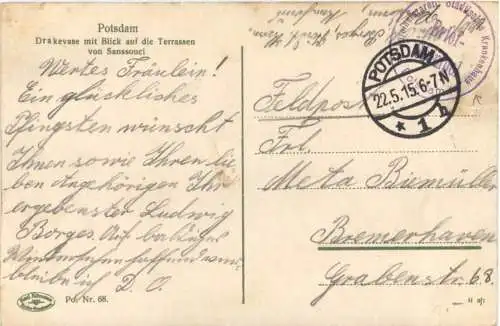 Potsdam
Drakevase mit Blick auf die Terrassen
von Sanssouci
Wertes Fräulein!
Ein glückliches
Pfingsten wünscht
Ihnen sowie Ihren lie
ben Angehörigen Ihr
ergebenster Ludwig
Borges. Auf baldiges
bleibe ich D. O.
Pot Nr. 68.
Städtische
Krankenhaus
POTSDAM
22.5.15.6-7N
* 1 h
Feldpost
Frl.
Meta Biemüller
Bremerhaven
Grabenstr. 68.